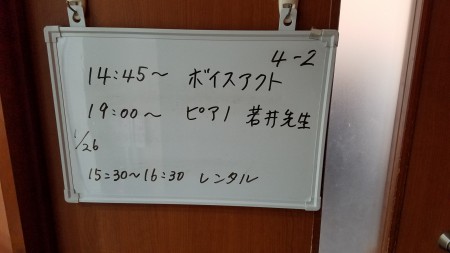 4-2
14:45～ ボイスアクト
19:00～ ピアノ 若井先生
1/26
15:30～16:30 レンタル